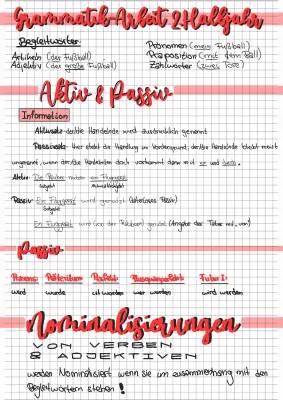 Grammatik-Arbeit 2 Halbjahr
Begleitwörter:
Artikeln (der Fußball)
Adjektiv (der große Fußball)
Pronomen (mein Fußball)
Präposition (mit dem Ball)
Zahlwörter (zwei Tore)
Aktiv & Passiv
Information
Aktivsatz: der/die Handelnde wird ausdrücklich genannt
Passivsatz: Hier steht die Handlung im Vordergrund, der/die Handelnde bleibt meist
ungenannt, wenn der/die Handelnden doch vorkommt dann mit
Aktiv: Die Räuber rauben ein Flugzeug
Subjekt
Passiv: Ein Flugzeug wird geraubt
Subjekt
Ein Flugzeug wird (von den Räubern) geraubt (Angabe der Täter mit „von“)
Passiv
Präsens: Präteritum: Perfekt: Plusquamperfekt: Futur I:
wird wurde ist worden war worden wird werden
Nominalisierungen
VON VERBEN
& ADJEKTIVEN
werden Nominalisiert wenn sie im zusammenhang mit den
Begleitwörtern stehen!